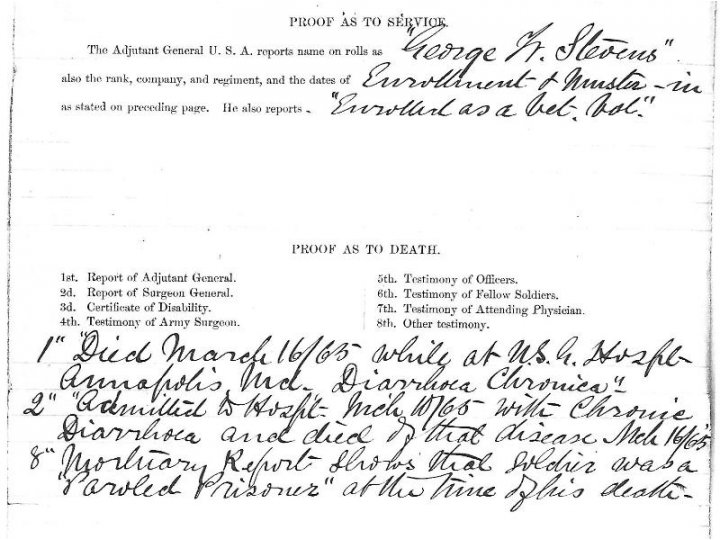 PROOF AS TO SERVICE.
The Adjutant General U. S. A. reports name on rolls as "George W. Stevens"
also the rank, company, and regiment, and the dates of Enrollment & Muster-in
as stated on preceding page. He also reports - "Enrolled as a Vet. Vol."
PROOF AS TO DEATH.
1st. Report of Adjutant General.
2d. Report of Surgeon General.
3d. Certificate of Disability.
4th. Testimony of Army Surgeon.
5th. Testimony of Officers.
6th. Testimony of Fellow Soldiers.
7th. Testimony of Attending Physician.
8th. Other testimony.
1" "Died March 16/65 while at U.S.G. Hospt-
Annapolis, Md- Diarrhoea Chronica"-
2" "Admitted to Hospt- Mch 10/65 with Chronic
Diarrhoea and died of that disease Mch 16/65
8" Mortuary Report shows that soldier was a
"Paroled Prisoner" at the time of his death-